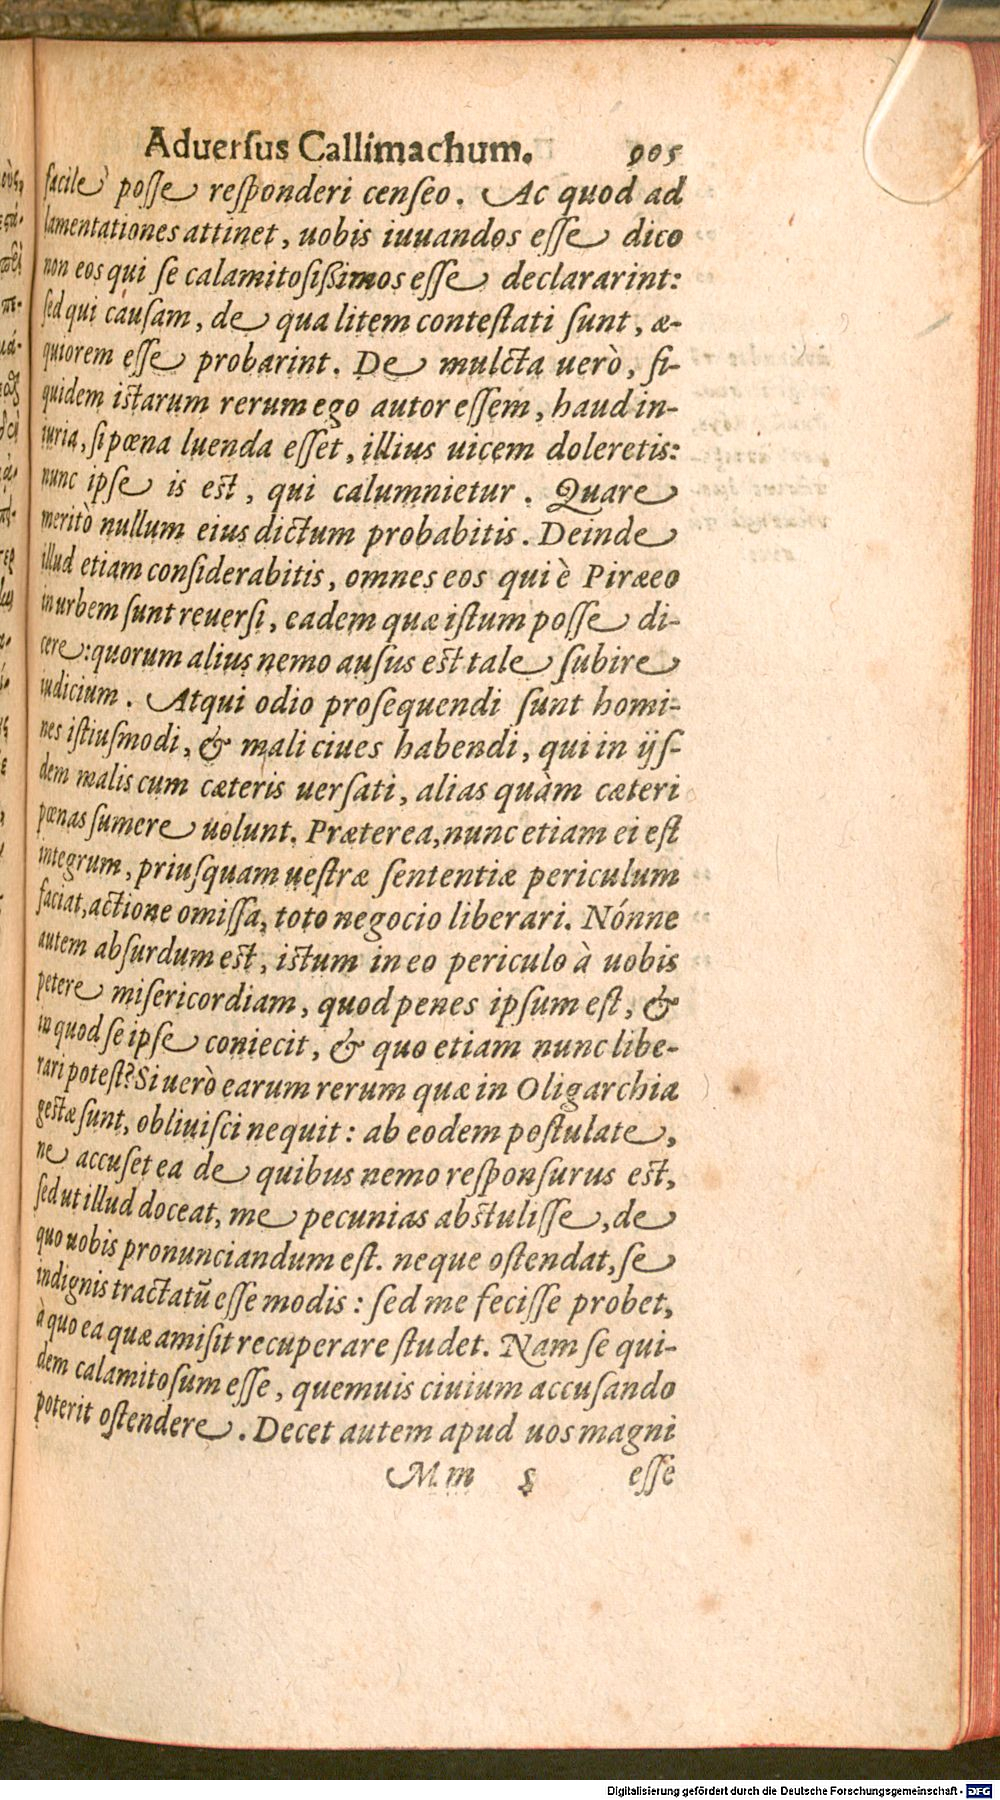 Aduerſus Callimachum. 905
facile poſſe reſponderi cenſeo. Ac quod ad
lamentationes attinet, uobis iuuandos eſſe dico
non eos qui ſe calamitoſißimos eſſe declararint:
ſed qui cáuſam, de qua litem conteſtati ſunt, æ-
quiorem eſſe probarint. De mulcta uerò, ſi-
quidem iſtarum rerum ego autor eſſem, haud in-
iuria, ſi pœna luenda eſſet, illius uicem doleretis:
nunc ipſe is eſt, qui calumnietur. Quare
meritò nullum eius dictum probabitis. Deinde
illud etiam conſiderabitis, omnes eos qui è Piræeo
in urbem ſunt reuerſi, eadem quæ iſtum poſſe di-
cere: quorum alius nemo auſus eſt tale ſubire
iudicium. Atqui odio proſequendi ſunt homi-
nes iſtiuſmodi, & mali ciues habendi, qui in ijſ-
dem malis cum cæteris uerſati, alias quàm cæteri
pœnas ſumere uolunt. Præterea, nunc etiam ei eſt
integrum, priuſquam ueſtræ ſententiæ periculum
faciat, actione omiſſa, toto negocio liberari. Nónne
autem abſurdum eſt, iſtum in eo periculo à uobis
petere miſericordiam, quod penes ipſum eſt, &
in quod ſe ipſe coniecit, & quo etiam nunc libe-
rari poteſt? Si uerò earum rerum quæ in Oligarchia
geſtæ ſunt, obliuiſci nequit: ab eodem poſtulate,
ne accuſet ea de quibus nemo reſponſurus eſt,
ſed ut illud doceat, me pecunias abſtuliſſe, de
quo uobis pronunciandum eſt. neque oſtendat, ſe
indignis tractatū eſſe modis: ſed me feciſſe probet,
à quo ea quæ amiſit recuperare ſtudet. Nam ſe qui-
dem calamitoſum eſſe, quemuis ciuium accuſando
poterit oſtendere. Decet autem apud uos magni
Mm 5 eſſe
Digitalisierung gefördert durch die Deutsche Forschungsgemeinschaft - DFG